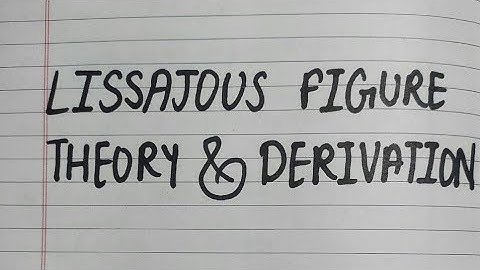 LISSAJOUS FIGURE
THEORY & DERIVATION